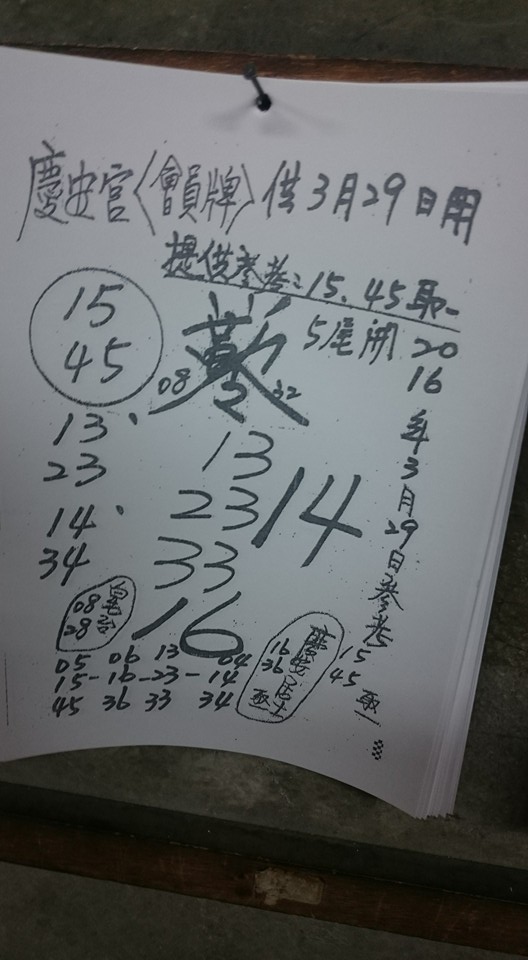 慶安宮〈會員牌〉供3月29日用
提供參考：15、45取一
5尾開
2016年3月29日參考
15
45
08 32
13、
23
14、
34
13
23
33
14
16
08
28
05 06 13 04
15-16-23-14
45 36 33 34
16
36
15
45